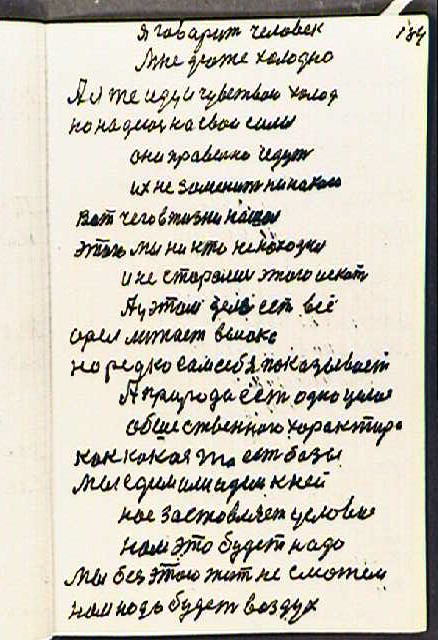 я говарит человек 184
Мне дюже холодно
А я же иду и чувствою холод
но надиюс на свои силы
они правелно едут
их не заменит ни на кого
Вот чего в жизни нашол
этого мы ни кто не находили
и не старалис этого искат
А у этом деле ест всё
орел литает высоко
но редко сам себя показывает
А природа ест одно целое
обшественного характира
как какая то ест базы
мы едим или идим к ней
нас заставляет условие
нам это будет надо
Мы без этого жит не сможем
нам надо будет воздух